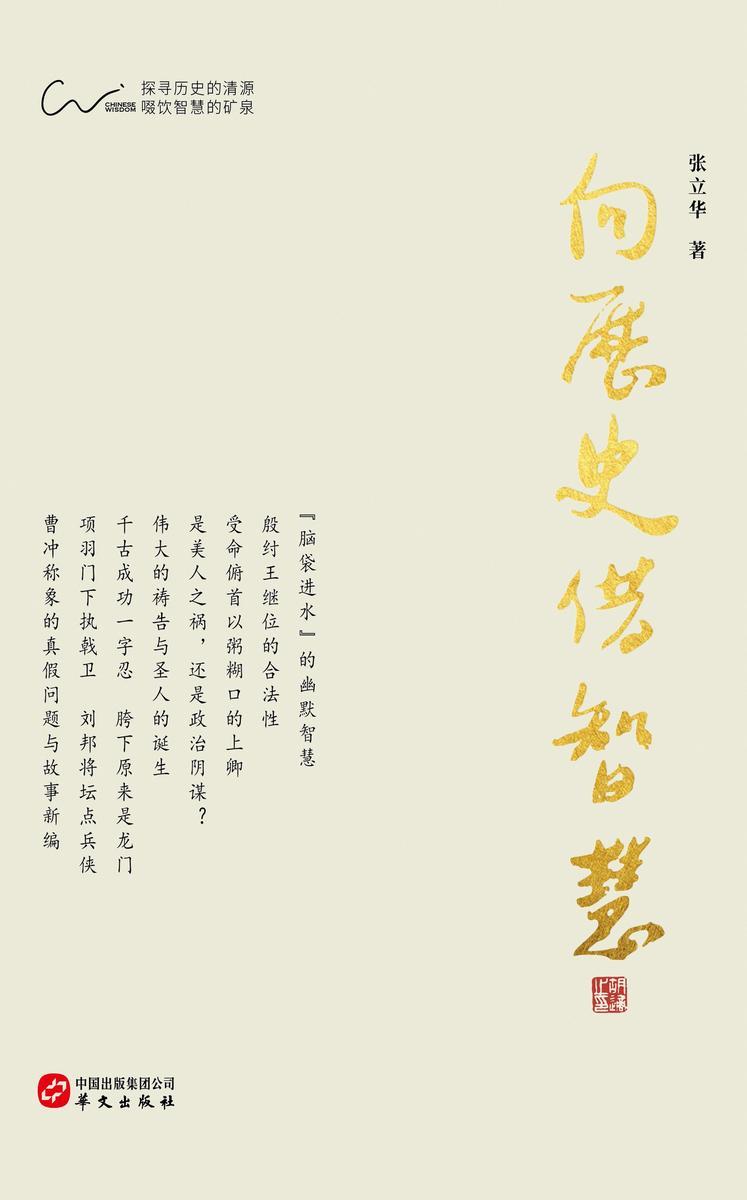 CHINESE
WISDOM
探寻历史的清源
啜饮智慧的矿泉
张立华 著
向历史借智慧
『脑袋进水』的幽默智慧
殷纣王继位的合法性
受命俯首以粥糊口的上卿
是美人之祸，还是政治阴谋？
伟大的祷告与圣人的诞生
千古成功一字忍 胯下原来是龙门
项羽门下执戟卫 刘邦将坛点兵侠
曹冲称象的真假问题与故事新编
中国出版集团公司
华文出版社